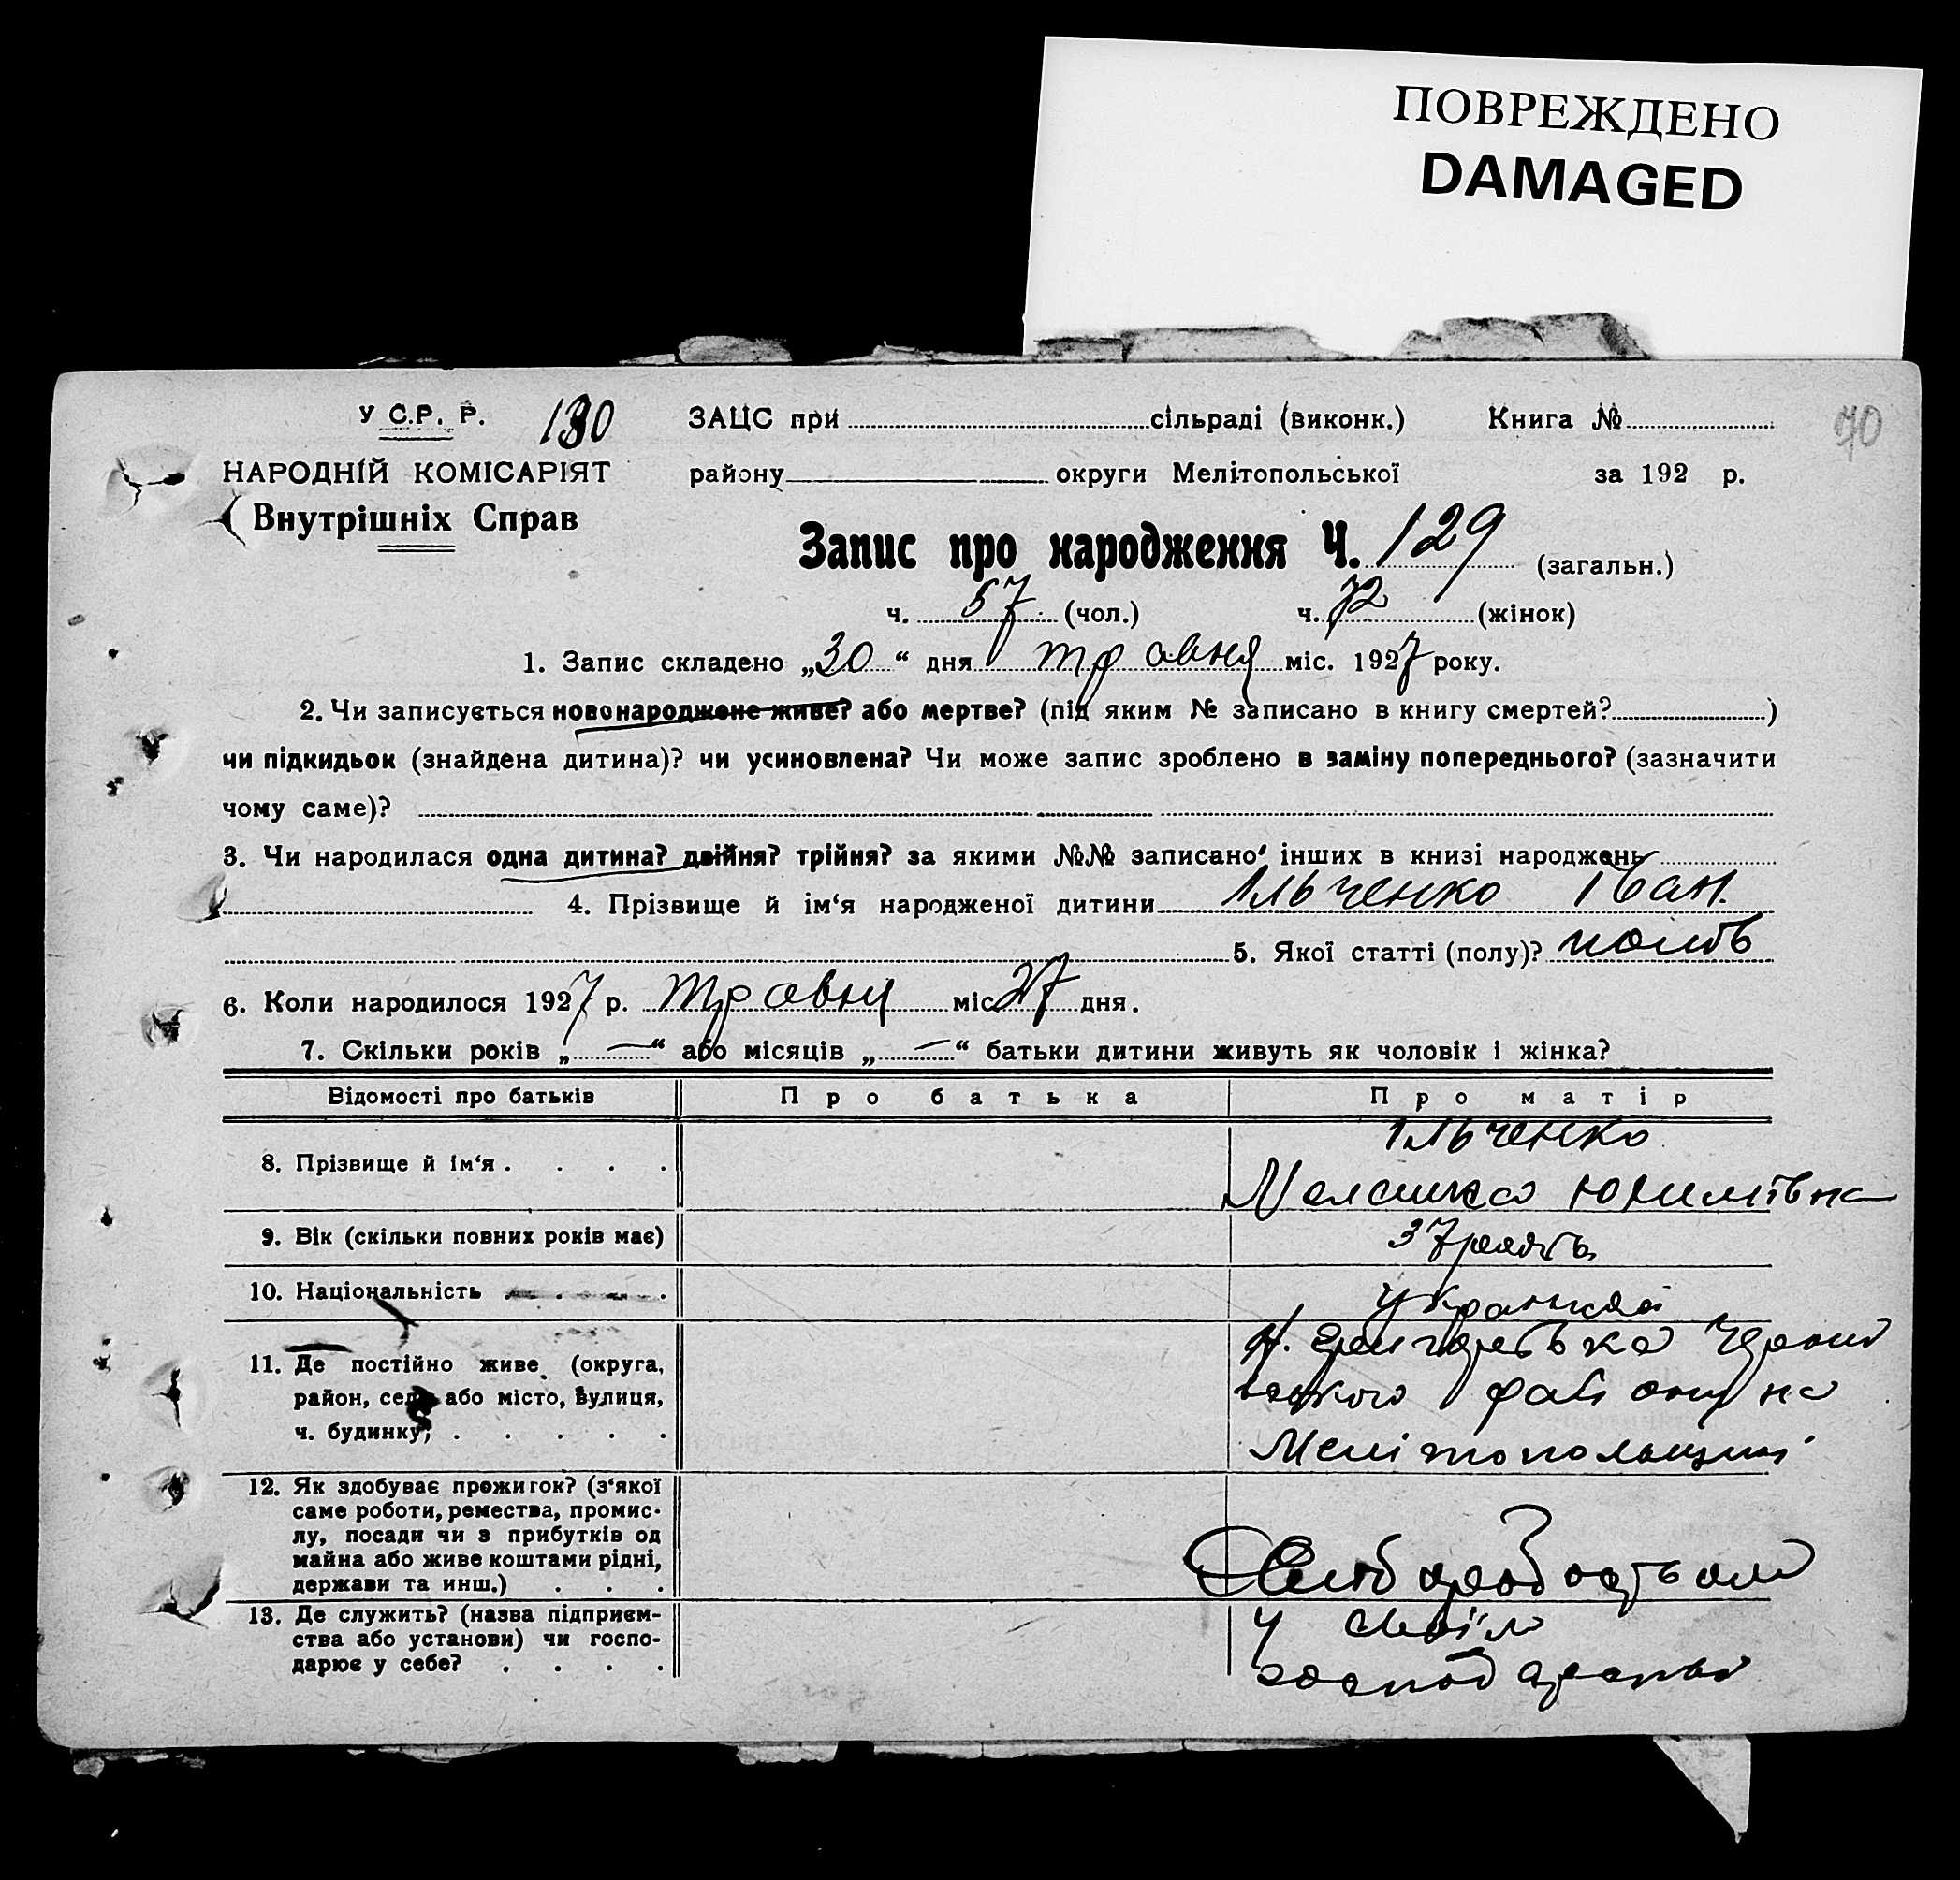 ПОВРЕЖДЕНО
DAMAGED
У С.Р. Р. 130 ЗАЦС при сільраді (виконк.) Книга № 70
НАРОДНІЙ КОМІСАРІЯТ району округи Мелітопольської за 192 р.
Внутрішніх Справ
Запис про народження Ч. 129 (загальн.)
ч. 57 (чол.) ч. 72 (жінок)
1. Запис складено „30“ дня травня міс. 1927 року.
2. Чи записується новонароджене живе? або мертве? (під яким № записано в книгу смертей? )
чи підкидьок (знайдена дитина)? чи усиновлена? Чи може запис зроблено в заміну попереднього? (зазначити
чому саме)?
3. Чи народилася одна дитина? двійня? трійня? за якими №№ записано інших в книзі народжень
4. Прізвище й ім‘я народженої дитини Ільченко Іван.
5. Якої статті (полу)?
6. Коли народилося 1927 р. травня міс 27 дня.
7. Скільки років „—“ або місяців „—“ батьки дитини живуть як чоловік і жінка?
Відомості про батьків Про батька Про матір
8. Прізвище й ім‘я . . . . Ільченко
9. Вік (скільки повних років має) 37
10. Національність
11. Де постійно живе (округа,
район, село або місто, вулиця, району на
ч. будинку, . . . . . Мелітопольщині
12. Як здобуває прожиток? (з‘якої
саме роботи, ремества, промис-
лу, посади чи з прибутків од
майна або живе коштами рідні,
держави та инш.) . . . Хліборобством
13. Де служить? (назва підприєм- у своїм
ства або установи) чи госпо-
дарює у себе? . . . . господарстві